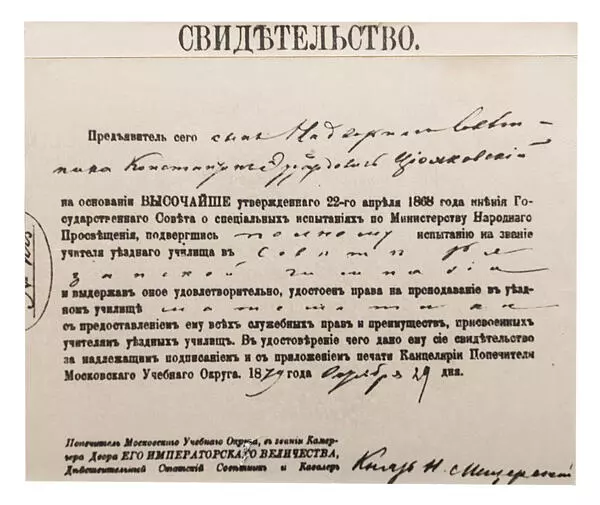 СВИДѢТЕЛЬСТВО.
Предъявитель сего сынъ Надворнаго Совѣт-
ника Константинъ Эдуардовичъ Ціолковскій
на основаніи ВЫСОЧАЙШЕ утвержденнаго 22-го апрѣля 1868 года мнѣнія Го-
сударственнаго Совѣта о спеціальныхъ испытаніяхъ по Министерству Народнаго
Просвѣщенія, подвергшись полному испытанію на званіе
учителя уѣзднаго училища въ Совѣтѣ Ря-
занской гимназіи
и выдержавъ оное удовлетворительно, удостоенъ права на преподаваніе въ уѣзд-
номъ училищѣ математики
съ предоставленіемъ ему всѣхъ служебныхъ правъ и преимуществъ, присвоенныхъ
учителямъ уѣздныхъ училищъ. Въ удостовѣреніе чего дано ему сіе свидѣтельство
за надлежащимъ подписаніемъ и съ приложеніемъ печати Канцеляріи Попечителя
Московскаго Учебнаго Округа. 1879 года Октября 29 дня.
Попечитель Московскаго Учебнаго Округа, въ званіи Камер-
гера Двора ЕГО ИМПЕРАТОРСКАГО ВЕЛИЧЕСТВА,
Дѣйствительный Статскій Совѣтникъ и Кавалеръ Князь Н. Мещерскій